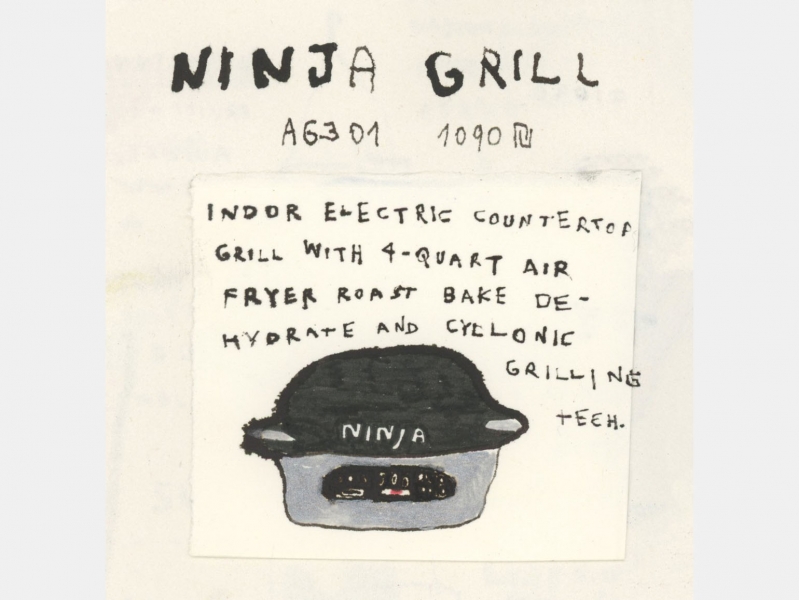 NINJA GRILL
AG301 1090₪
INDOR ELECTRIC COUNTERTOP
GRILL WITH 4-QUART AIR
FRYER ROAST BAKE DE-
HYDRATE AND CYCLONIC
GRILLING
TECH.
NINJA
500